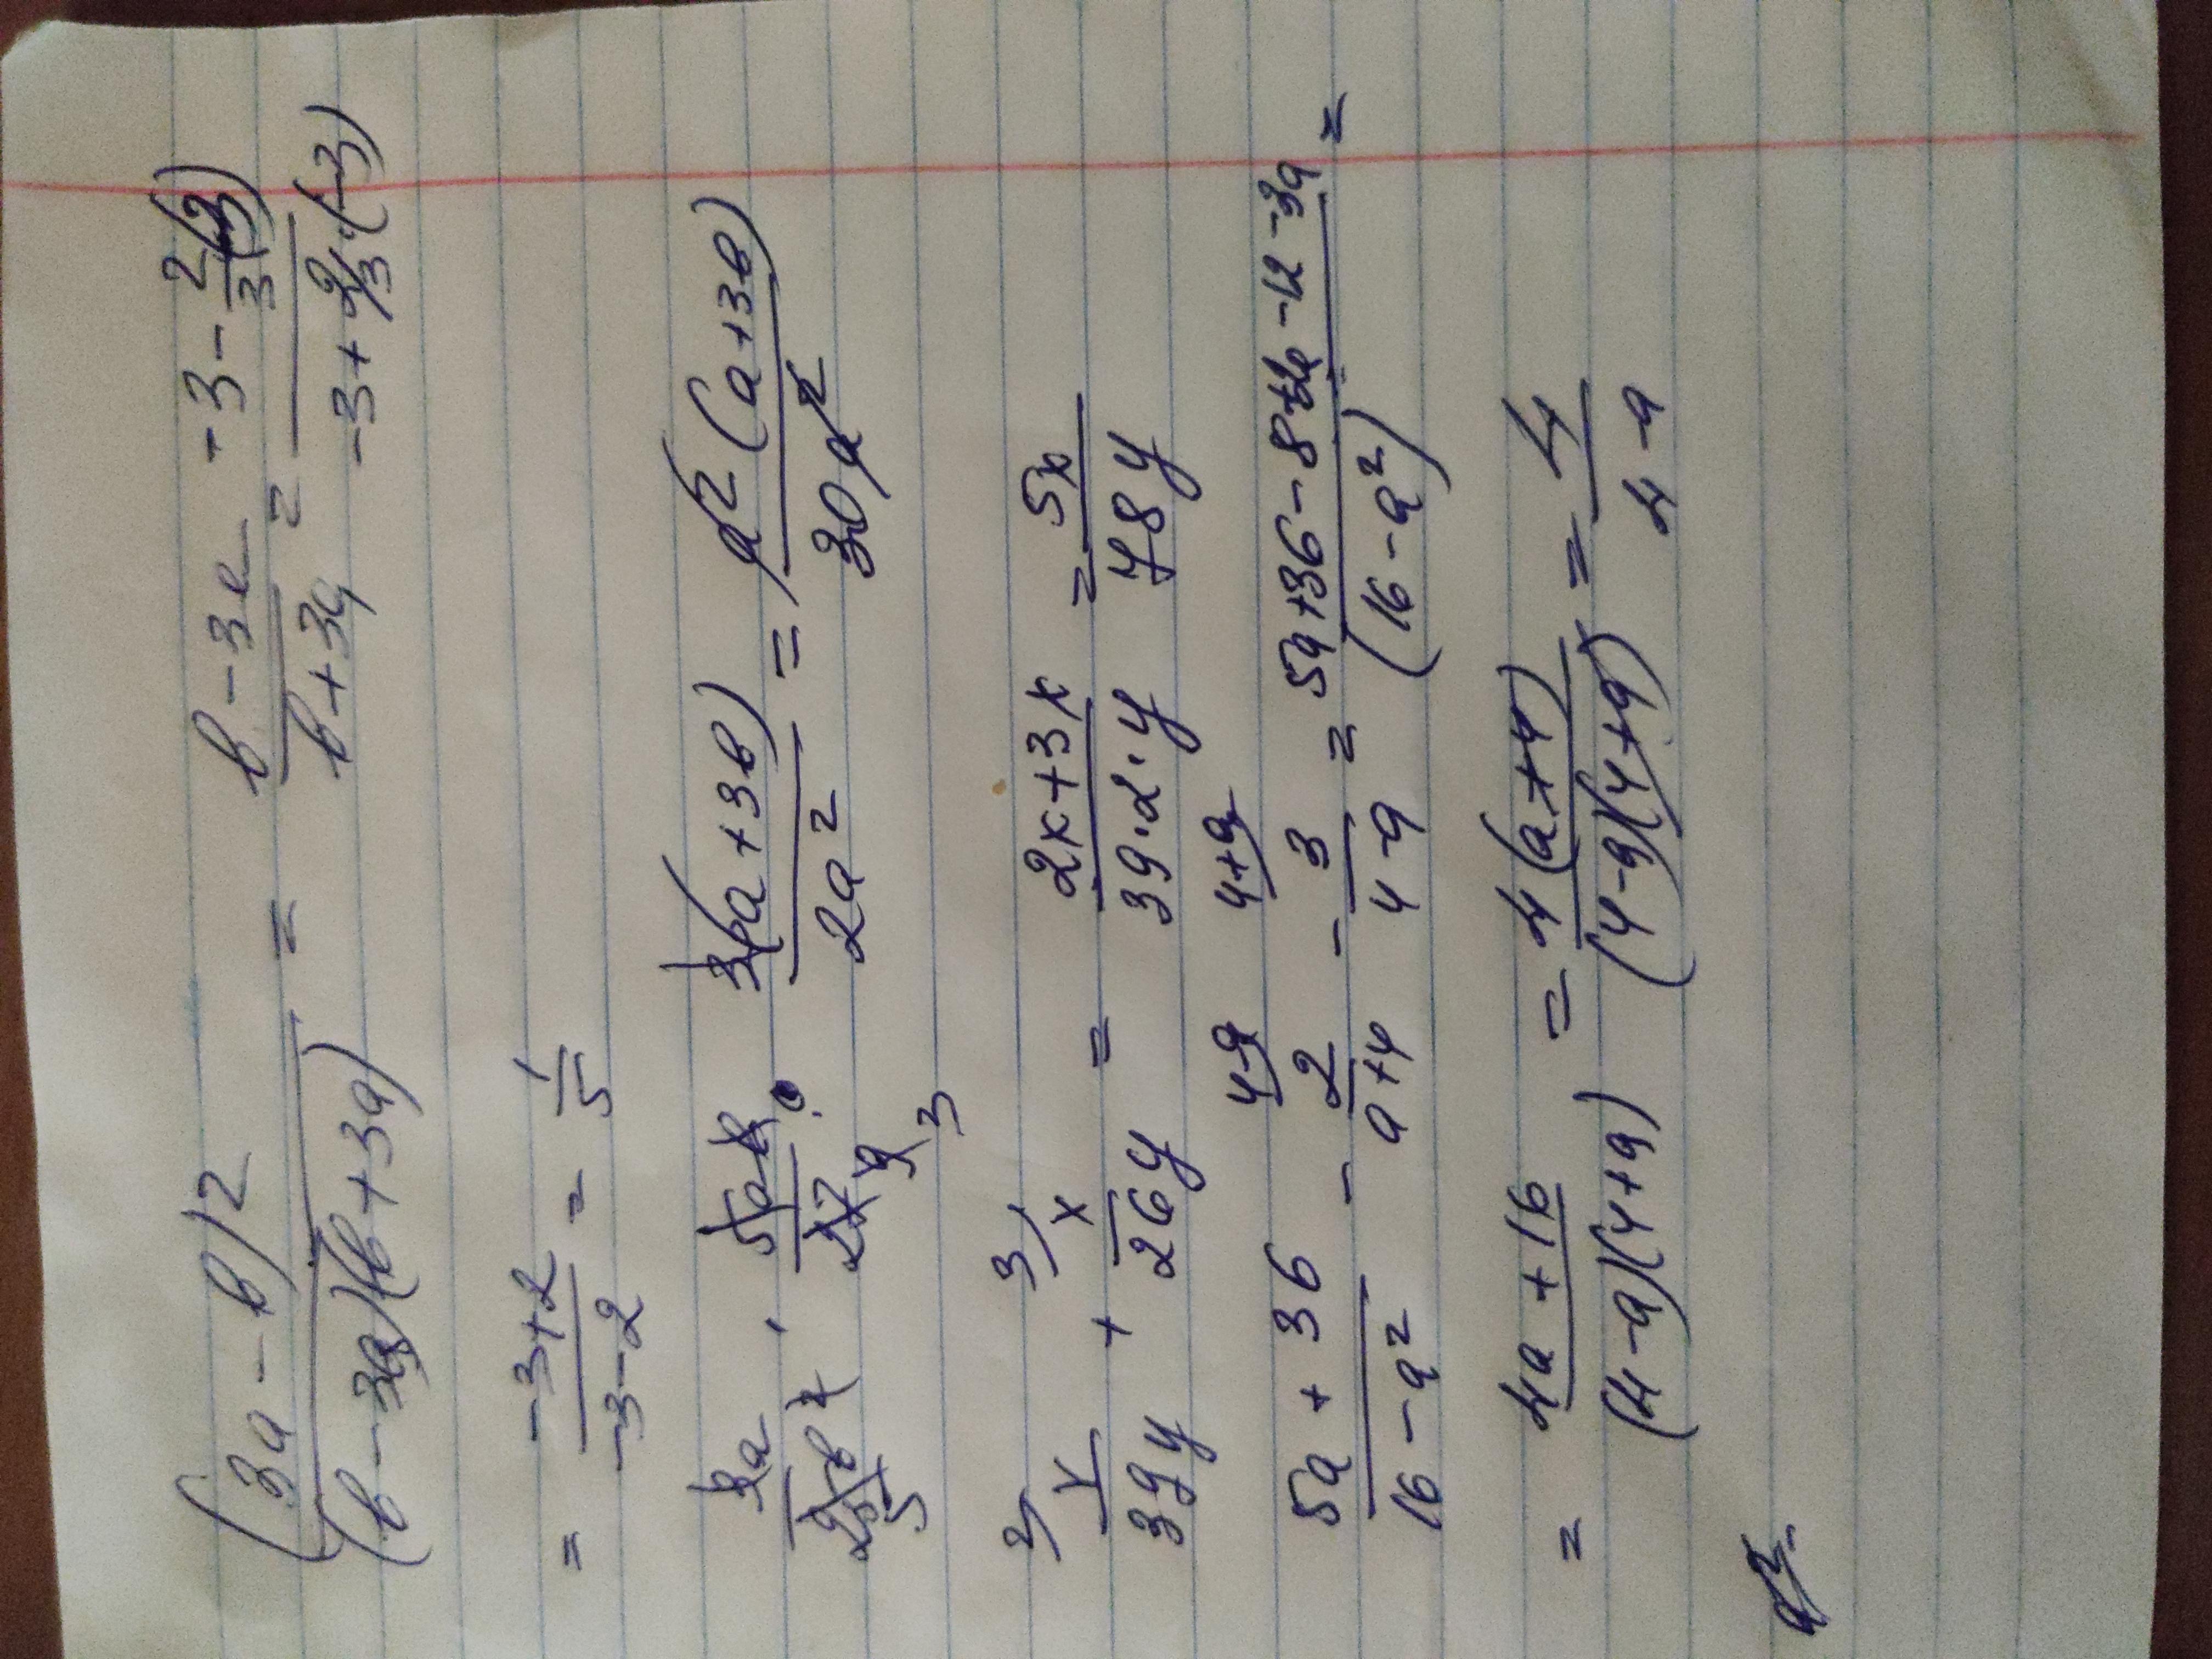 (3a - b)² / (b - 3a)(b + 3a) = b - 3a / b + 3a = -3 - 2/3 / -3 + 2/3 · (-3)
= -3+2 / -3-2 = 1/5
3a / 25b · 5ab / 27 9 3 3(a+3b) / 2a² = a²(a+3b) / 30a²
2) x / 39y + 3) x / 26y = 2x+3x / 39·2·y = 5x / 78y
4-a 4+a
5a + 36 / 16 - a² - 2 / a+4 - 3 / 4-a = 5a+36-8+2a-12-3a / (16-a²) =
= 4a + 16 / (4-a)(4+a) = 4(a+4) / (4-a)(4+a) = 4 / 4-a